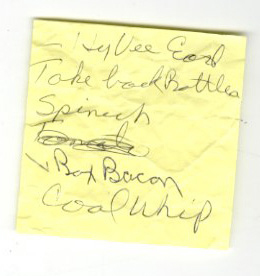 - HyVee East
Take back Bottles
Spinech
✓ Box Bacon
Coal Whip